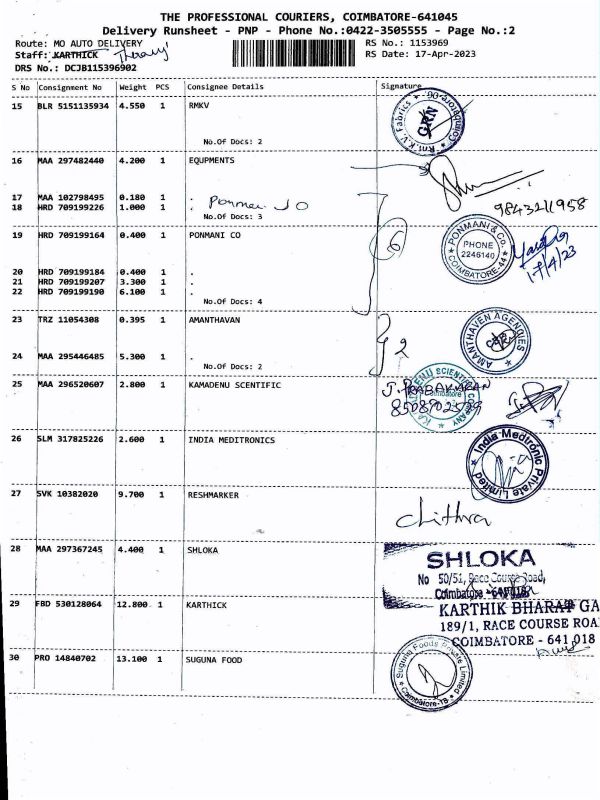 THE PROFESSIONAL COURIERS, COIMBATORE-641045
Delivery Runsheet - PNP - Phone No.:0422-3505555 - Page No.:2
Route: MO AUTO DELIVERY RS No.: 1153969
Staff: KARTHICK RS Date: 17-Apr-2023
DRS No.: DCJB115396902
S No Consignment No Weight PCS Consignee Details Signature
15 BLR 5151135934 4.550 1 RMKV
No.Of Docs: 2
Rm K.V. Fabrics Coimbatore GRN
16 MAA 297482440 4.200 1 EQUPMENTS
17 MAA 102798495 0.180 1 .
18 HRD 709199226 1.000 1 .
No.Of Docs: 3
9843211958
19 HRD 709199164 0.400 1 PONMANI CO
6
PONMANI & Co. PHONE 2246140 COIMBATORE-44
17/4/23
20 HRD 709199184 0.400 1 .
21 HRD 709199207 3.300 1 .
22 HRD 709199190 6.100 1 .
No.Of Docs: 4
23 TRZ 11054308 0.395 1 AMANTHAVAN
AMANTHAVEN AGENCIES
2
24 MAA 295446485 5.300 1 .
No.Of Docs: 2
25 MAA 296520607 2.800 1 KAMADENU SCIENTIFIC
J. PRABAKARAN
26 SLM 317825226 2.600 1 INDIA MEDITRONICS
India Medtronic Private Limited
27 SVK 10382020 9.700 1 RESHMARKER
chithra
28 MAA 297367245 4.400 1 SHLOKA
SHLOKA
No 50/51, Race Course Road,
Coimbatore - 641018
29 FBD 530128064 12.800 1 KARTHICK
KARTHIK BHARAT GA
189/1, RACE COURSE ROA
COIMBATORE - 641 018
30 PRO 14840702 13.100 1 SUGUNA FOOD
Suguna Foods Private Limited Coimbatore-18